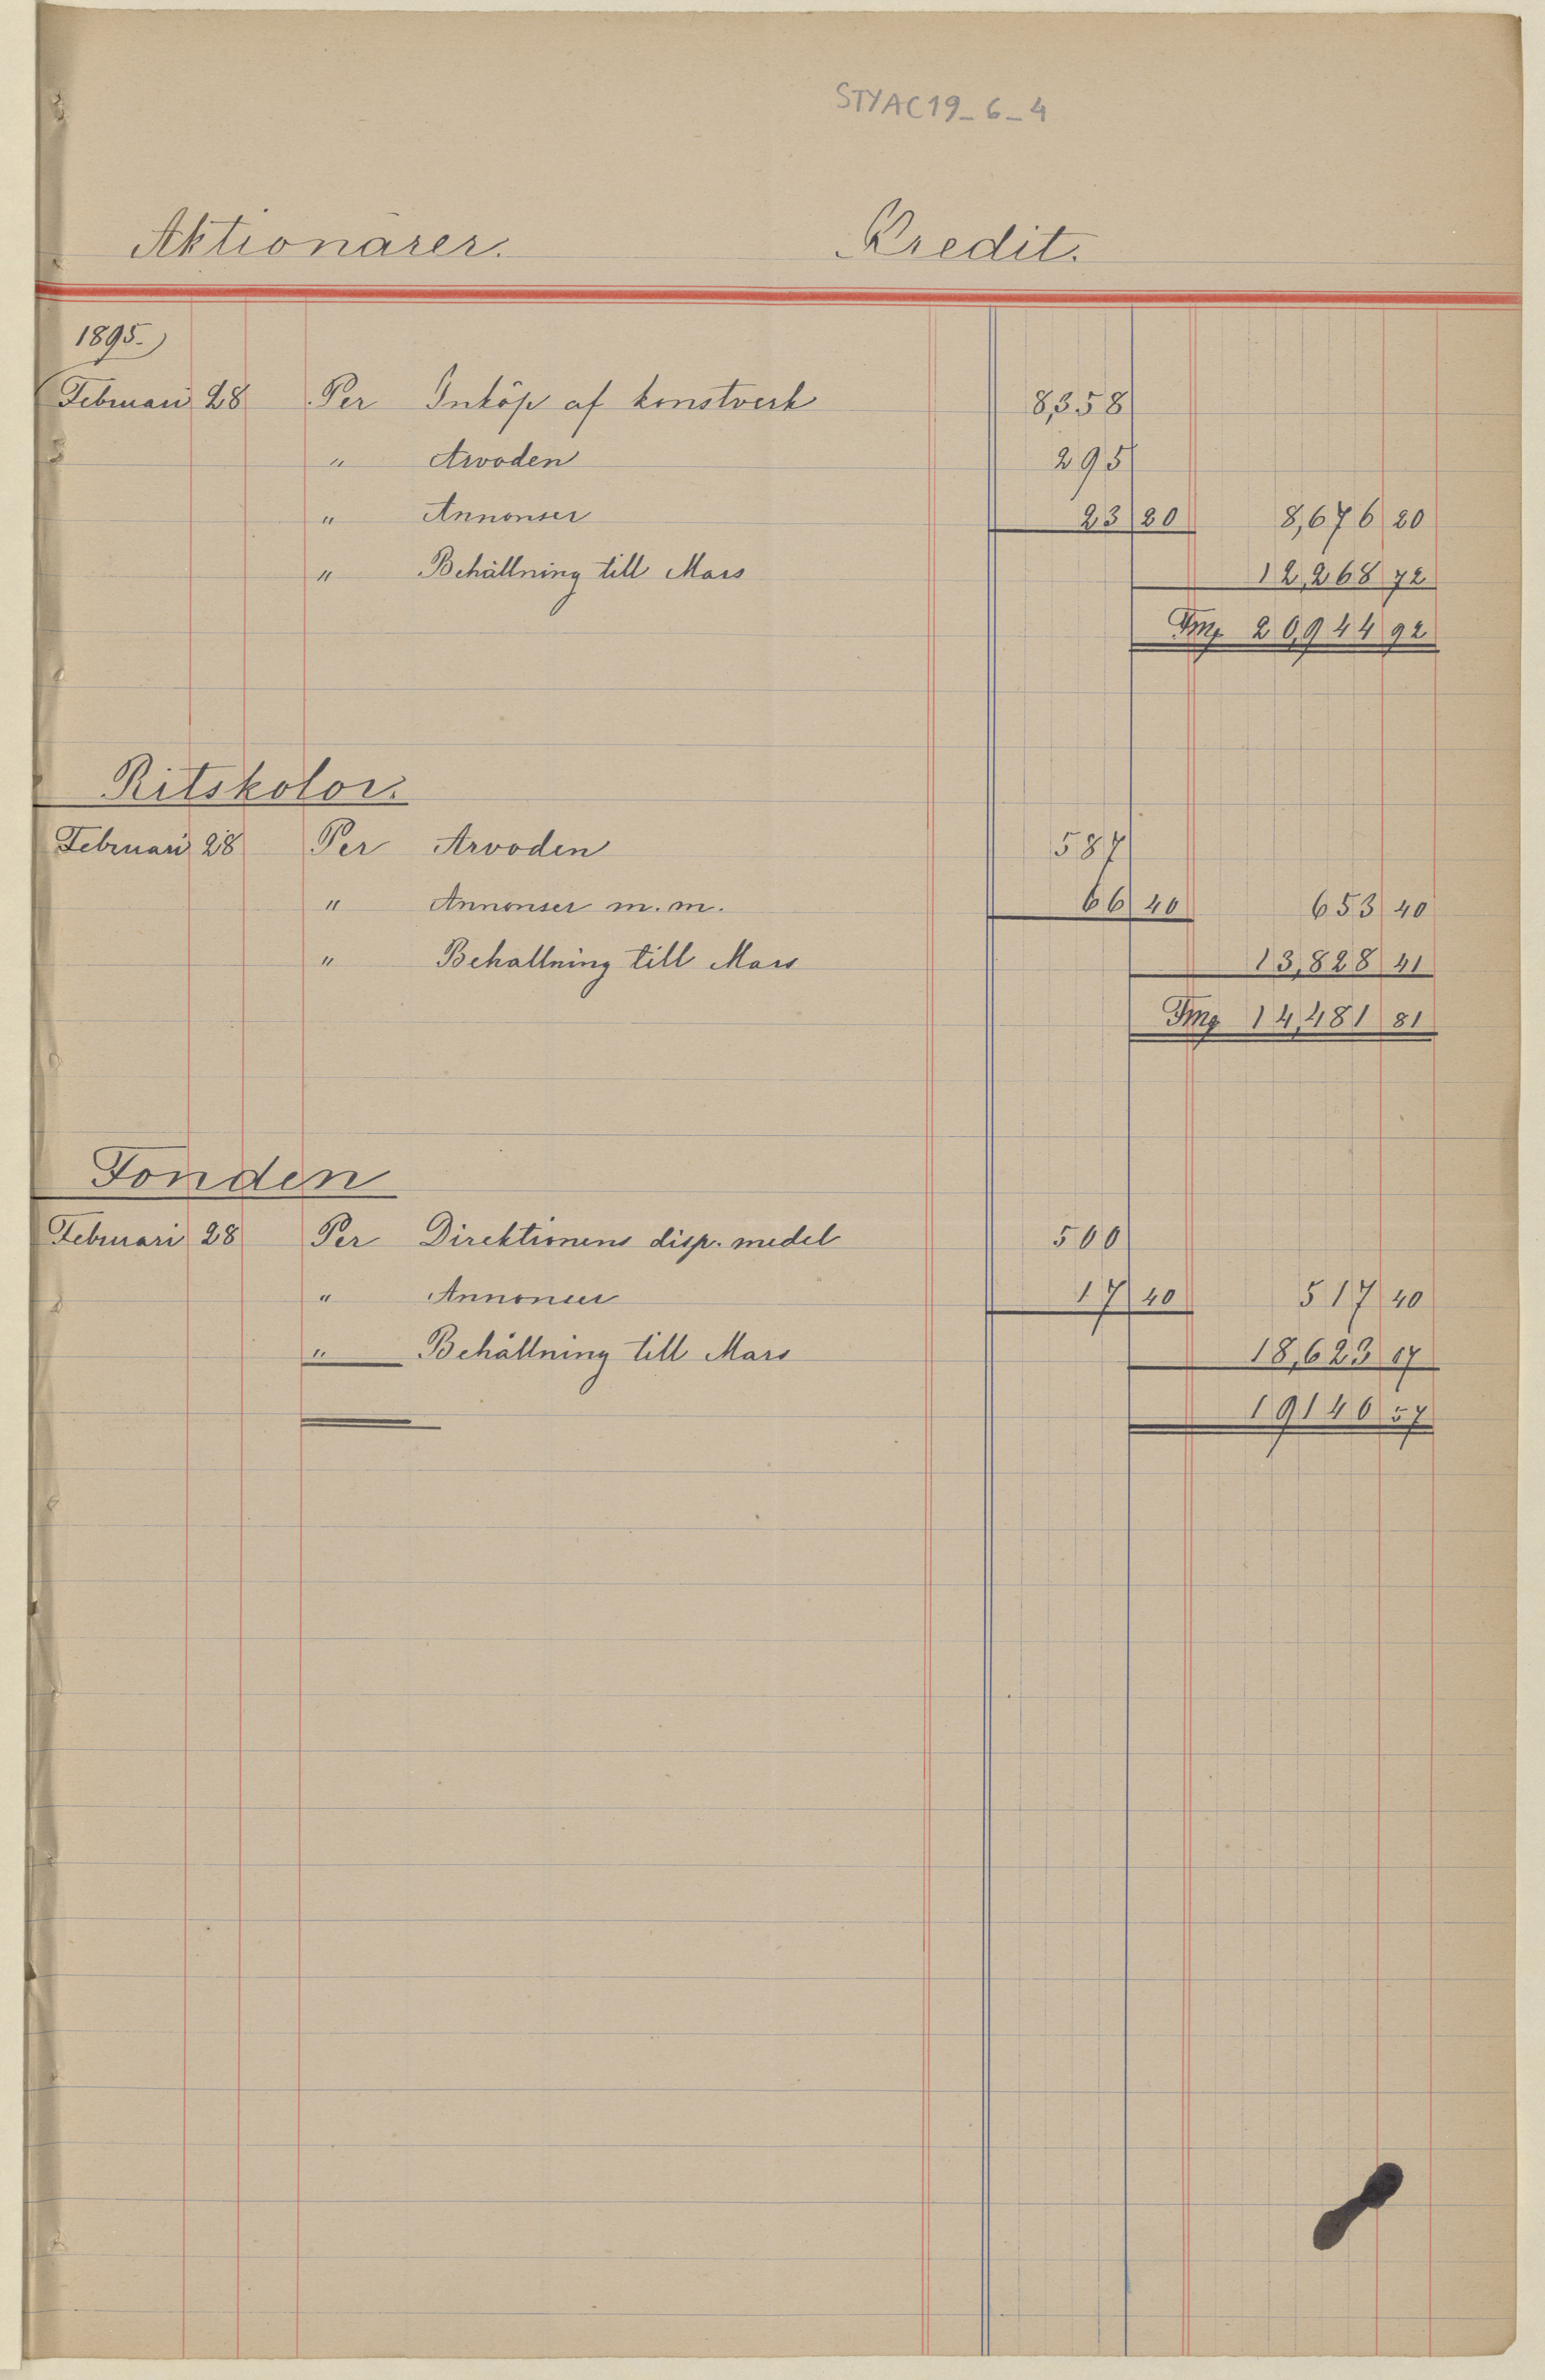 STYAC19_6_4
Aktionärer. Kredit.
1895.
Februari 28 Per Inköp af konstverk 8,358
" Arvoden 295
" Annonser 23 20 8,676 20
" Behållning till Mars 12,268 72
Fmg 20,944 92
Ritskolor.
Februari 28 Per Arvoden 587
" Annonser m.m. 66 40 653 40
" Behallning till Mars 13,828 41
Fmg 14,481 81
Fonden
Februari 28 Per Direktionens disp. medel 500
" Annonser 17 40 517 40
" Behållning till Mars 18,623 17
19140 57